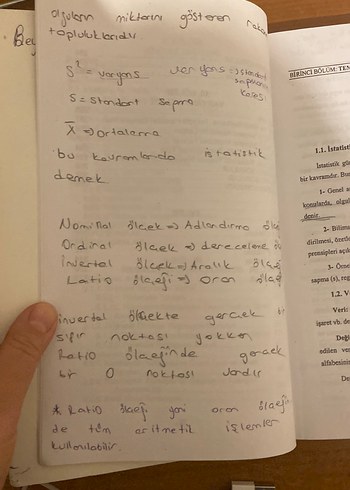 olguların miktarını gösteren raka
topluluklarıdır.
S² = varyans varyans => standart
sapmanın
karesi
S = standart sapma
X̄ => Ortalama
bu kavramlarıda istatistik
demek
Nominal ölçek => Adlandırma ölçe
Ordinal ölçek => dereceleme öl
invertal ölçek => Aralık ölçeğ
Latio ölçeği => oran ölçeğ
invertal ölçekte gerçek bir
sıfır noktası yokken
Ratio ölçeğinde gerçek
bir 0 noktası vardır
* Ratio ölçeği yani oran ölçeğin
de tüm aritmetik işlemler
kullanılabilir.
Bey
BİRİNCİ BÖLÜM: TEM
1.1. İstatisti
İstatistik gü
bir kavramdır. Bun
1- Genel a
konularda, olgul
denir.
2- Bilims
dirilmesi, özetle
prensipleri açıkl
3- Örne
sapma (s), reg
1.2. V
Veri:
işaret vb. de
Deği
adilen ver
alfabesinin
De